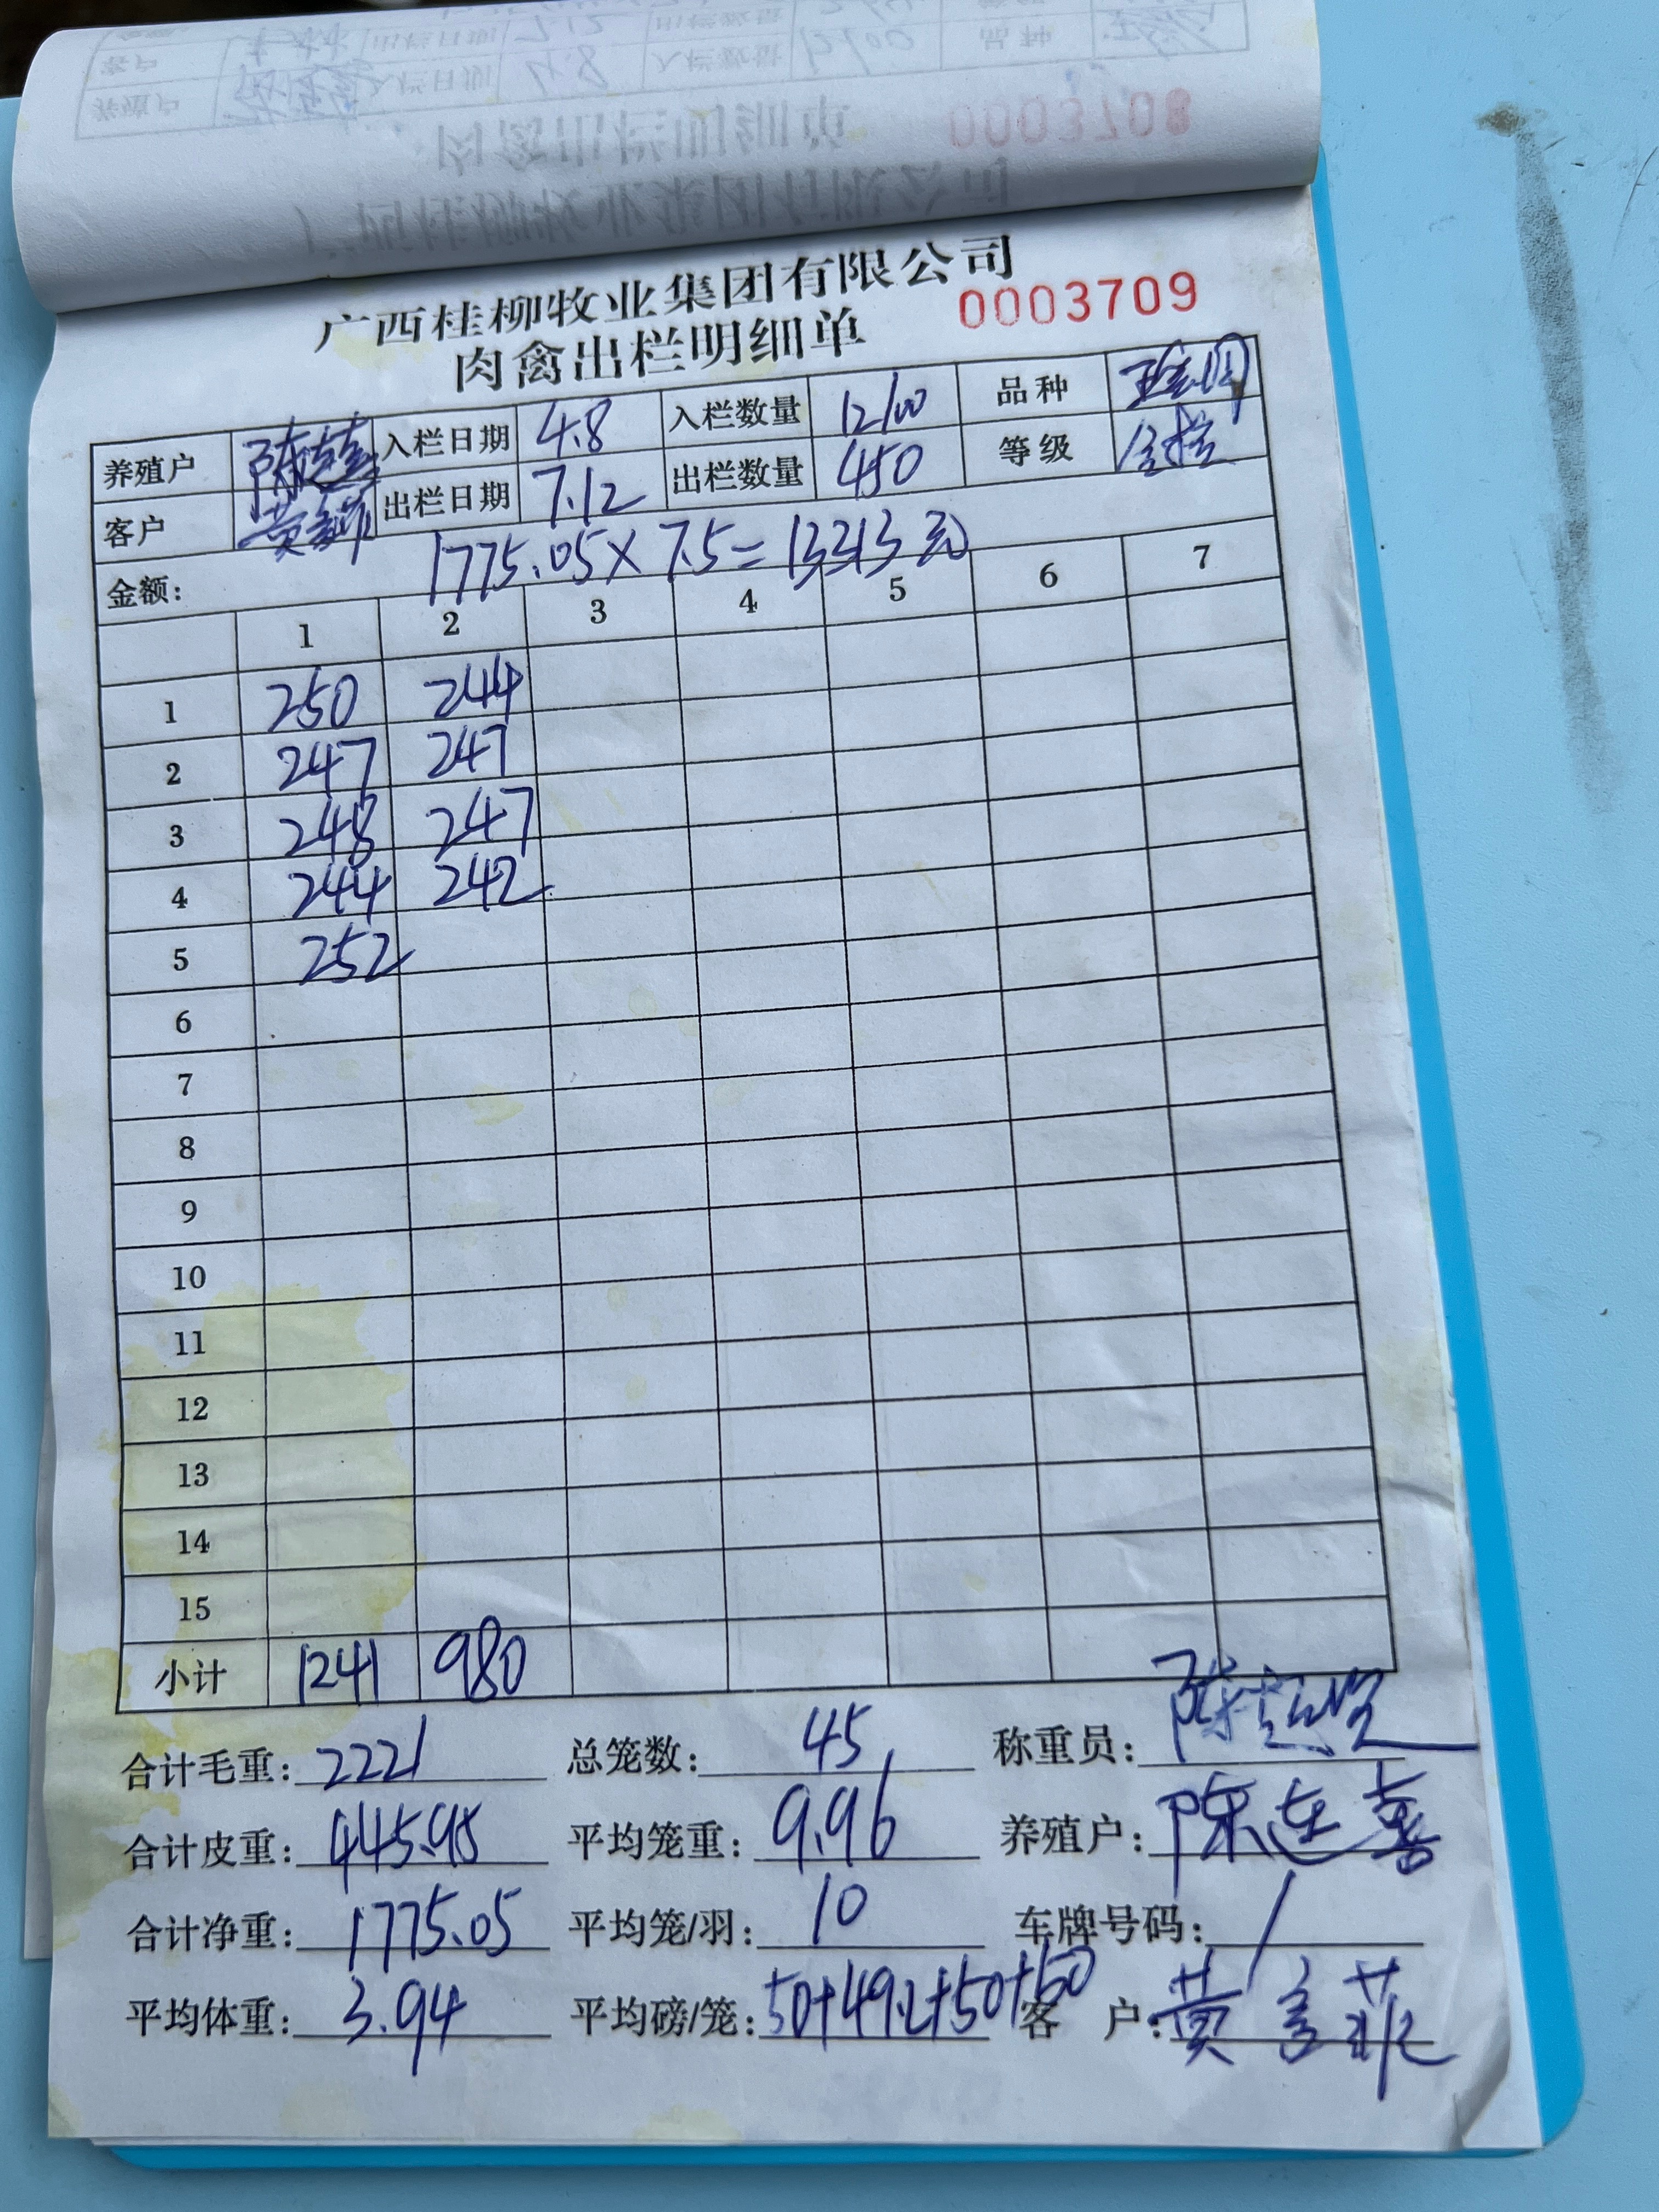 0003708
广西桂柳牧业集团有限公司
肉禽出栏明细单 0003709
养殖户 入栏日期 4.8 入栏数量 12100 品种
客户 黄 出栏日期 7.12 出栏数量 450 等级 全栏
金额: 1775.05×7.5=13313元
1 2 3 4 5 6 7
1 250 244
2 247 247
3 248 247
4 244 242
5 252
6
7
8
9
10
11
12
13
14
15
小计 1241 980
合计毛重: 2221 总笼数: 45 称重员: 陈
合计皮重: 445.95 平均笼重: 9.96 养殖户: 陈连喜
合计净重: 1775.05 平均笼/羽: 10 车牌号码: /
平均体重: 3.94 平均磅/笼: 50+49.2+50+50 客 户: 黄